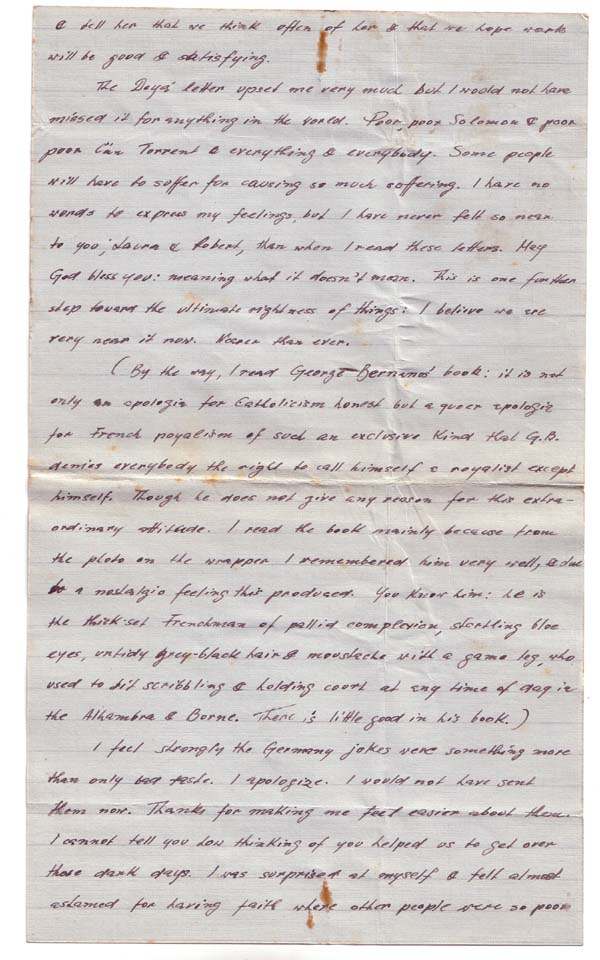 & tell her that we think often of her & that we hope works
will be good & satisfying.
The Doyas' letter upset me very much but I would not have
missed it for anything in the world. Poor, poor Solomon & poor
poor Can Torrent & everything & everybody. Some people
will have to suffer for causing so much suffering. I have no
words to express my feelings, but I have never felt so near
to you, Laura & Robert, than when I read these letters. May
God bless you: meaning what it doesn't mean. This is one further
step toward the ultimate rightness of things: I believe we are
very near it now. Nearer than ever.
(By the way, I read George Bernanos' book: it is not
only an apologia for Catholicism honest but a queer apologia
for French royalism of such an exclusive kind that G.B.
denies everybody the right to call himself a royalist except
himself. Though he does not give any reason for this extra-
ordinary attitude. I read the book mainly because from
the photo on the wrapper I remembered him very well, & due
to a nostalgic feeling this produced. You know him: he is
the thick-set Frenchman of pallid complexion, startling blue
eyes, untidy grey-black hair & moustache with a game leg, who
used to sit scribbling & holding court at any time of day in
the Alhambra & Borne. There is little good in his book.)
I feel strongly the Germany jokes were something more
than only bad taste. I apologize. I would not have sent
them now. Thanks for making me feel easier about them.
I cannot tell you how thinking of you helped us to get over
those dark days. I was surprised at myself & felt almost
ashamed for having faith where other people were so poor